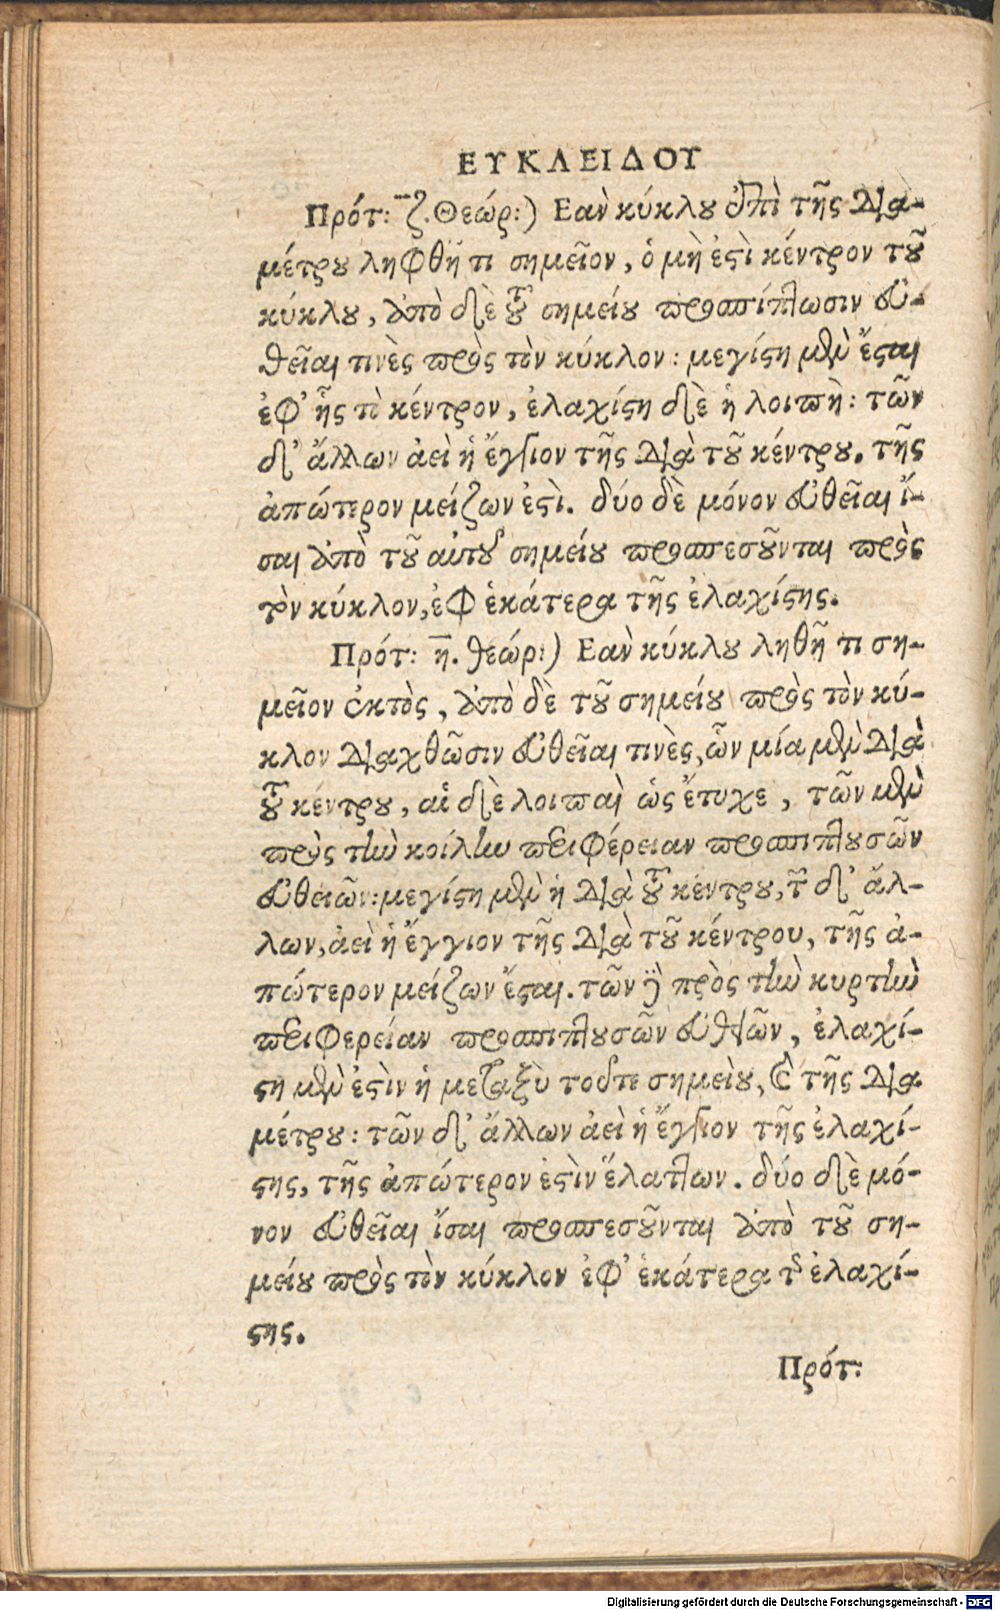 ΕΥΚΛΕΙΔΟΥ
Πρότ: ζ. Θεώρ:) Εαν κύκλου ἐπὶ τῆς δια-
μέτρου ληφθῆ τι σημεῖον, ὁ μὴ ἐστὶ κέντρον τοῦ
κύκλου, ἀπὸ δὲ τοῦ σημείου προσπίπτωσιν εὐ-
θεῖαι τινὲς πρὸς τὸν κύκλον: μεγίστη μὲν ἔσται
ἐφ’ ἧς τὸ κέντρον, ἐλαχίστη δὲ ἡ λοιπὴ: τῶν
δ’ ἄλλων ἀεὶ ἡ ἔγγιον τῆς διὰ τοῦ κέντρου. τῆς
ἀπώτερον μείζων ἐστὶ. δύο δὲ μόνον εὐθεῖαι ἴ-
σαι ἀπὸ τοῦ αὐτοῦ σημείου προσπεσοῦνται πρὸς
τὸν κύκλον, ἐφ ἑκάτερα τῆς ἐλαχίστης.
Πρότ: η. θεώρ:) Εαν κύκλου ληθῆ τι ση-
μεῖον ἐκτὸς, ἀπὸ δὲ τοῦ σημείου πρὸς τὸν κύ-
κλον διαχθῶσιν εὐθεῖαι τινὲς, ὧν μία μὲν διὰ
τοῦ κέντρου, αἱ δὲ λοιπαὶ ὡς ἔτυχε, τῶν μὲν
πρὸς τὴν κοίλην περιφέρειαν προσπιπτουσῶν
εὐθειῶν: μεγίστη μὲν ἡ διὰ τοῦ κέντρου, τῶν δ’ ἄλ-
λων, ἀεὶ ἡ ἔγγιον τῆς διὰ τοῦ κέντρου, τῆς ἀ-
πώτερον μείζων ἔσται. τῶν δὲ πρὸς τὴν κυρτὴν
περιφερείαν προσπιπτουσῶν εὐθειῶν, ἐλαχί-
στη μὲν ἐστὶν ἡ μεταξὺ τοῦτε σημείου, καὶ τῆς δια
μέτρου: τῶν δ’ ἄλλων ἀεὶ ἡ ἔγγιον τῆς ἐλαχί-
στης, τῆς ἀπώτερον ἐστὶν ἔλαττων. δύο δὲ μό-
νον εὐθεῖαι ἴσαι προσπεσοῦνται ἀπὸ τοῦ ση-
μείου πρὸς τὸν κύκλον ἐφ’ ἑκάτερα τῆς ἐλαχί-
στης.
Πρότ:
Digitalisierung gefördert durch die Deutsche Forschungsgemeinschaft - DFG